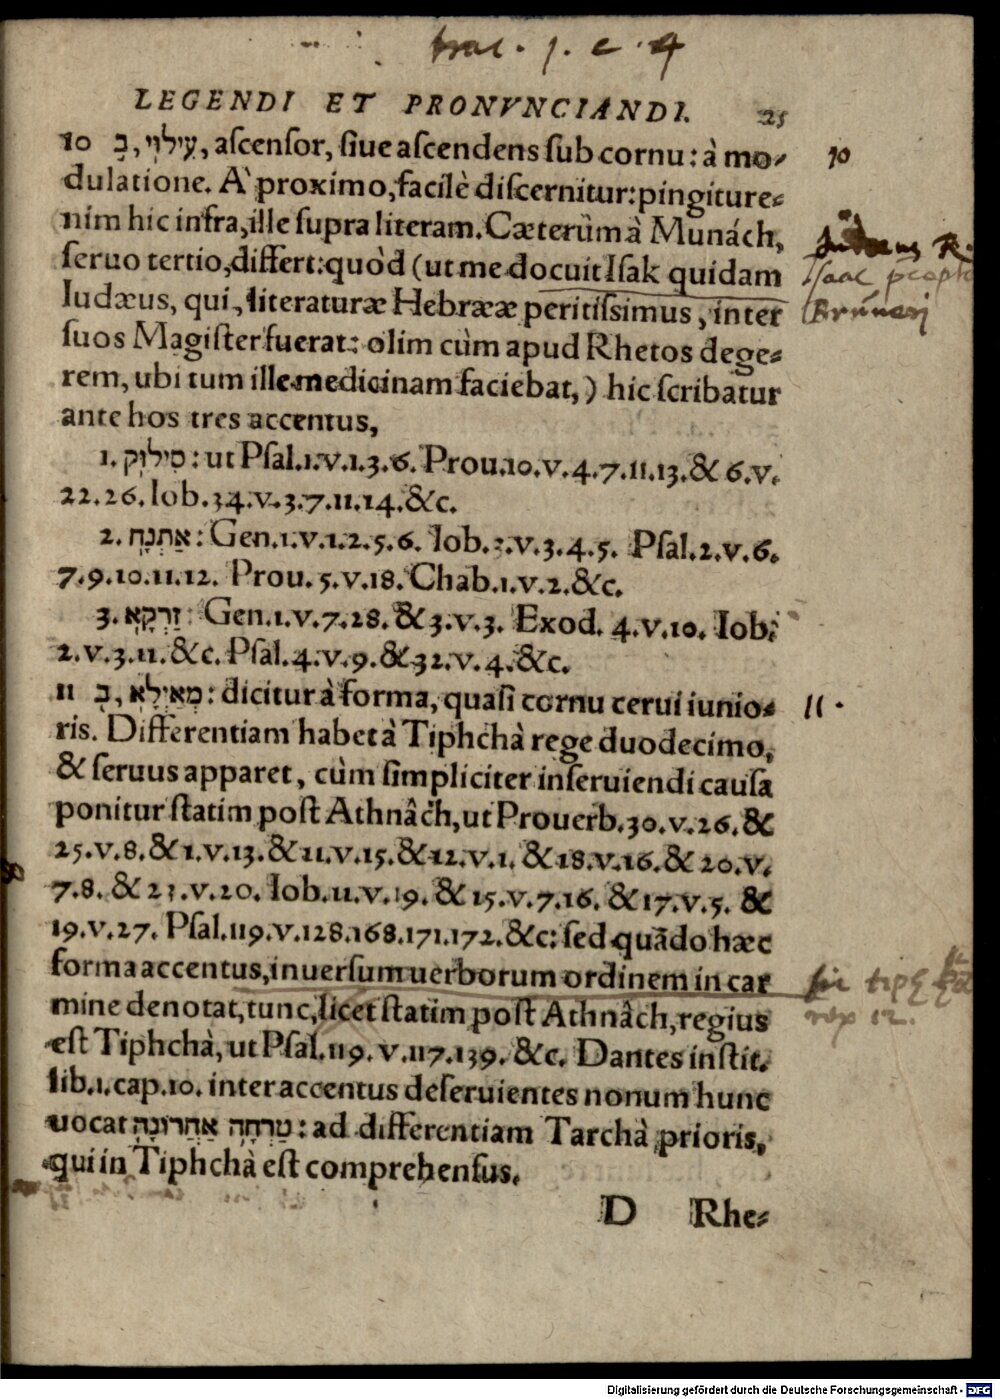 trac. 1. c. 4
LEGENDI ET PRONVNCIANDI. 25
10 עִילוּי, בֻ, aſcenſor, ſiue aſcendens ſub cornu: à mo-
10
dulatione. A' proximo, facilè diſcernitur: pingitur e-
nim hic infra, ille ſupra literam. Cæterùm à Munách,
ſeruo tertio, differt: quòd (ut me docuit Iſak quidam
Iudæus R.
Isaac
Iudæus, qui, literaturæ Hebrææ peritiſsimus, inter
ſuos Magiſter fuerat: olim cùm apud Rhetos dege-
rem, ubi tum ille medicinam faciebat,) hic ſcribatur
ante hos tres accentus,
1. סִילוּק: ut Pſal.1.v.1.3.6. Prou.10.v.4.7.11.13.& 6.v.
22.26. Iob.34.v.3.7.11.14.&c.
2. אַתְנָח: Gen.1.v.1.2.5.6. Iob.3.v.3.4.5. Pſal.2.v.6.
7.9.10.11.12. Prou.5.v.18. Chab.1.v.2.&c.
3. זַרְקָא: Gen.1.v.7.28.& 3.v.3. Exod. 4.v.10. Iob.
2.v.3.11.&c. Pſal.4.v.9.&32.v.4.&c.
11 מְאַיְלָא, בְ: dicitur à forma, quaſi cornu cerui iunio-
11.
ris. Differentiam habet à Tiphchà rege duodecimo,
& ſeruus apparet, cùm ſimpliciter inſeruiendi cauſa
ponitur ſtatim poſt Athnâch, ut Prouerb.30.v.26.&
25.v.8.&1.v.13.&11.v.15.&12.v.1.&18.v.16.& 20.v.
7.8. & 23.v.20. Iob.11.v.19.& 15.v.7.16. & 17.v.5. &
19.v.27. Pſal.119.v.128.168.171.172.&c: ſed quãdo hæc
forma accentus, inuerſum uerborum ordinem in car
ſic
rex 12.
mine denotat, tunc, licet ſtatim poſt Athnâch, regius
eſt Tiphchà, ut Pſal.119.v.117.139. &c. Dantes inſtit.
lib.1.cap.10. inter accentus deſeruientes nonum hunc
uocat טַרְחָה אַחֲרוּנָה: ad differentiam Tarchà prioris,
qui in Tiphchà eſt comprehenſus.
D Rhe-
Digitalisierung gefördert durch die Deutsche Forschungsgemeinschaft - DFG